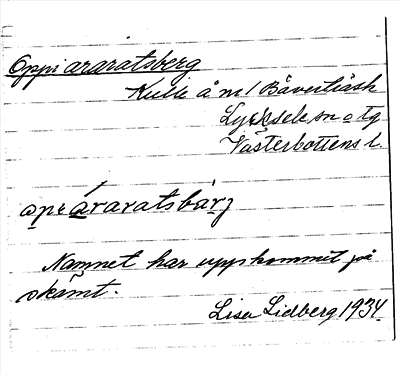 Oppi araratsberg
Kulle å m/ Bäverträsk
Lycksele sn o tg
Västerbottens l.
opı áraratsbàrj
Namnet har uppkommit på
skämt.
Lisa Lidberg 1934.